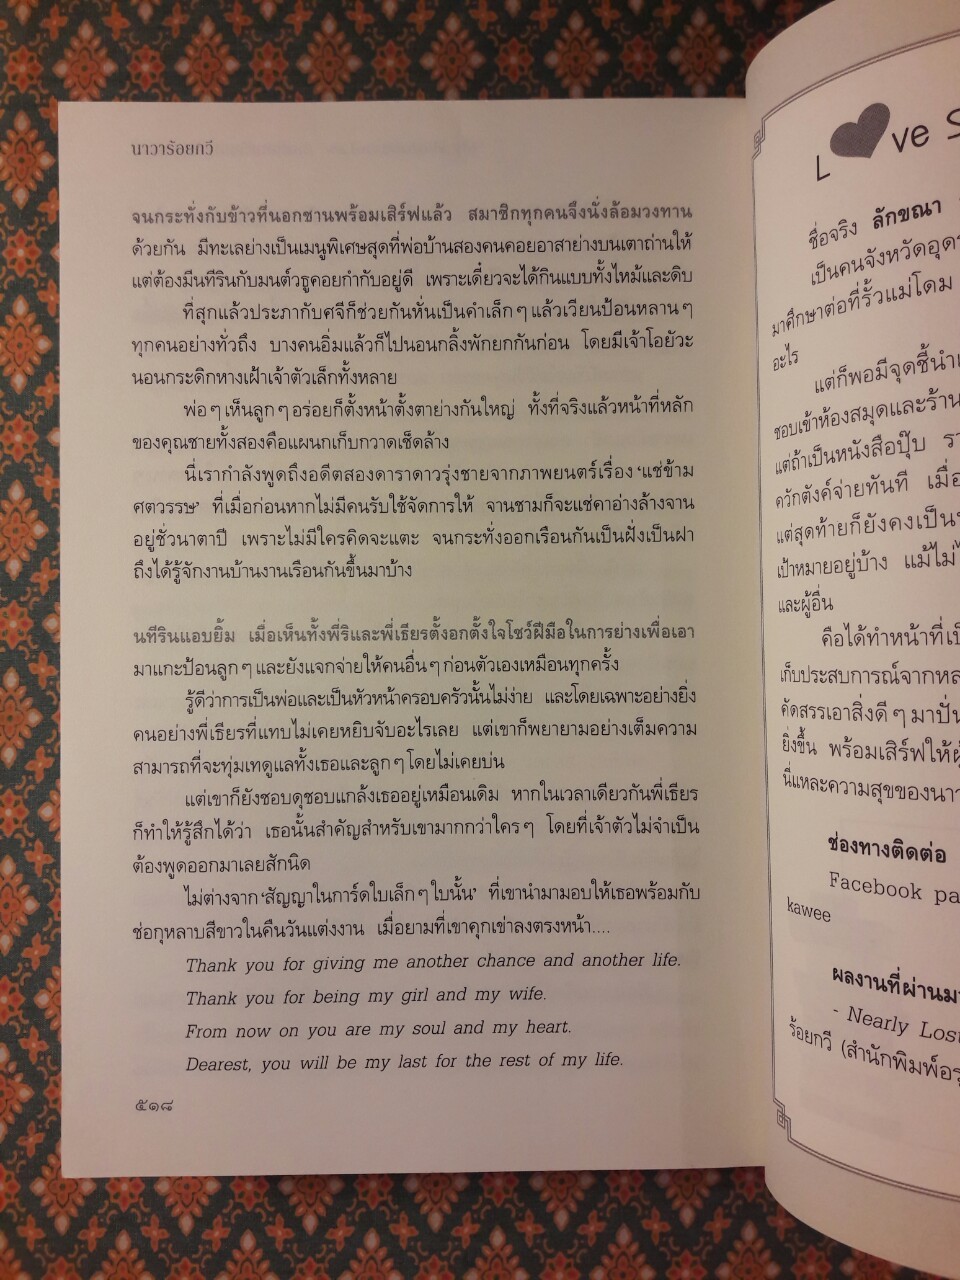 นาวาร้อยกวี
จนกระทั่งกับข้าวที่นอกชานพร้อมเสิร์ฟแล้ว สมาชิกทุกคนจึงนั่งล้อมวงทาน
ด้วยกัน มีทะเลย่างเป็นเมนูพิเศษสุดที่พ่อบ้านสองคนคอยอาสาย่างบนเตาถ่านให้
แต่ต้องมีนทีรินกับมนต์วธูคอยกำกับอยู่ดี เพราะเดี๋ยวจะได้กินแบบทั้งไหม้และดิบ
ที่สุกแล้วประภากับศจีก็ช่วยกันหั่นเป็นคำเล็กๆ แล้วเวียนป้อนหลานๆ
ทุกคนอย่างทั่วถึง บางคนอิ่มแล้วก็ไปนอนกลิ้งพักยกกันก่อน โดยมีเจ้าโอยัวะ
นอนกระดิกหางเฝ้าเจ้าตัวเล็กทั้งหลาย
พ่อๆ เห็นลูกๆ อร่อยก็ตั้งหน้าตั้งตาย่างกันใหญ่ ทั้งที่จริงแล้วหน้าที่หลัก
ของคุณชายทั้งสองคือแผนกเก็บกวาดเช็ดล้าง
นี่เรากำลังพูดถึงอดีตสองดาราดาวรุ่งชายจากภาพยนตร์เรื่อง ‘แช่ข้าม
ศตวรรษ’ ที่เมื่อก่อนหากไม่มีคนรับใช้จัดการให้ จานชามก็จะแช่คาอ่างล้างจาน
อยู่ชั่วนาตาปี เพราะไม่มีใครคิดจะแตะ จนกระทั่งออกเรือนกันเป็นฝั่งเป็นฝา
ถึงได้รู้จักงานบ้านงานเรือนกันขึ้นมาบ้าง
นทีรินแอบยิ้ม เมื่อเห็นทั้งพี่ริและพี่เธียรตั้งอกตั้งใจโชว์ฝีมือในการย่างเพื่อเอา
มาแกะป้อนลูกๆ และยังแจกจ่ายให้คนอื่นๆ ก่อนตัวเองเหมือนทุกครั้ง
รู้ดีว่าการเป็นพ่อและเป็นหัวหน้าครอบครัวนั้นไม่ง่าย และโดยเฉพาะอย่างยิ่ง
คนอย่างพี่เธียรที่แทบไม่เคยหยิบจับอะไรเลย แต่เขาก็พยายามอย่างเต็มความ
สามารถที่จะทุ่มเทดูแลทั้งเธอและลูกๆ โดยไม่เคยบ่น
แต่เขาก็ยังชอบดุชอบแกล้งเธออยู่เหมือนเดิม หากในเวลาเดียวกันพี่เธียร
ก็ทำให้รู้สึกได้ว่า เธอนั้นสำคัญสำหรับเขามากกว่าใครๆ โดยที่เจ้าตัวไม่จำเป็น
ต้องพูดออกมาเลยสักนิด
ไม่ต่างจาก ‘สัญญาในการ์ดใบเล็กๆ ใบนั้น’ ที่เขานำมามอบให้เธอพร้อมกับ
ช่อกุหลาบสีขาวในคืนวันแต่งงาน เมื่อยามที่เขาคุกเข่าลงตรงหน้า....
Thank you for giving me another chance and another life.
Thank you for being my girl and my wife.
From now on you are my soul and my heart.
Dearest, you will be my last for the rest of my life.
๕๑๘
L ve S
ชื่อจริง ลักขณา
เป็นคนจังหวัดอุดร
มาศึกษาต่อที่รั้วแม่โดม
อะไร
แต่ก็พอมีจุดชี้นำ
ชอบเข้าห้องสมุดและร้าน
แต่ถ้าเป็นหนังสือปุ๊บ
ควักตังค์จ่ายทันที เมื่อ
แต่สุดท้ายก็ยังคงเป็น
เป้าหมายอยู่บ้าง แม้ไม่
และผู้อื่น
คือได้ทำหน้าที่
เก็บประสบการณ์จาก
คัดสรรเอาสิ่งดีๆ มาปั่น
ยิ่งขึ้น พร้อมเสิร์ฟให้
นี่แหละความสุขของ
ช่องทางติดต่อ
Facebook pa
kawee
ผลงานที่ผ่านมา
- Nearly Lost
ร้อยกวี (สำนักพิมพ์